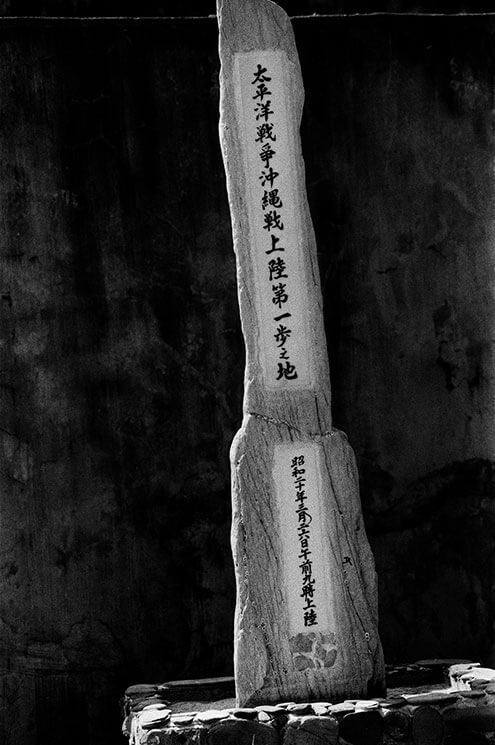 太平洋戦争沖縄戦上陸第一歩之地
昭和二十年三月二六日午前九時上陸